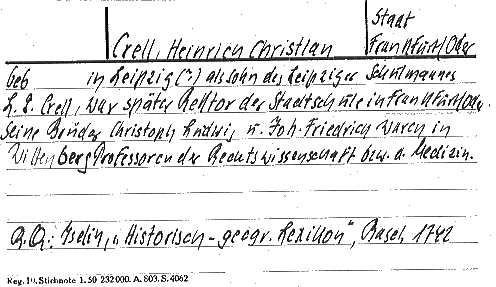 Staat
Crell, Heinrich Christian Frankfurt/Oder
geb in Leipzig (?) als Sohn des Leipziger Schulmannes
L. C. Crell, war später Rektor der Stadtschule in Frankfurt/Oder.
Seine Brüder Christoph Ludwig u. Joh. Friedrich waren in
Wittenberg Professoren der Rechtswissenschaft bzw. d. Medizin.
Q.Q.: Iselin, „Historisch-geogr. Lexikon", Basel, 1742
Reg. Stichnote 1. 50 232000. A. 803. S. 4062